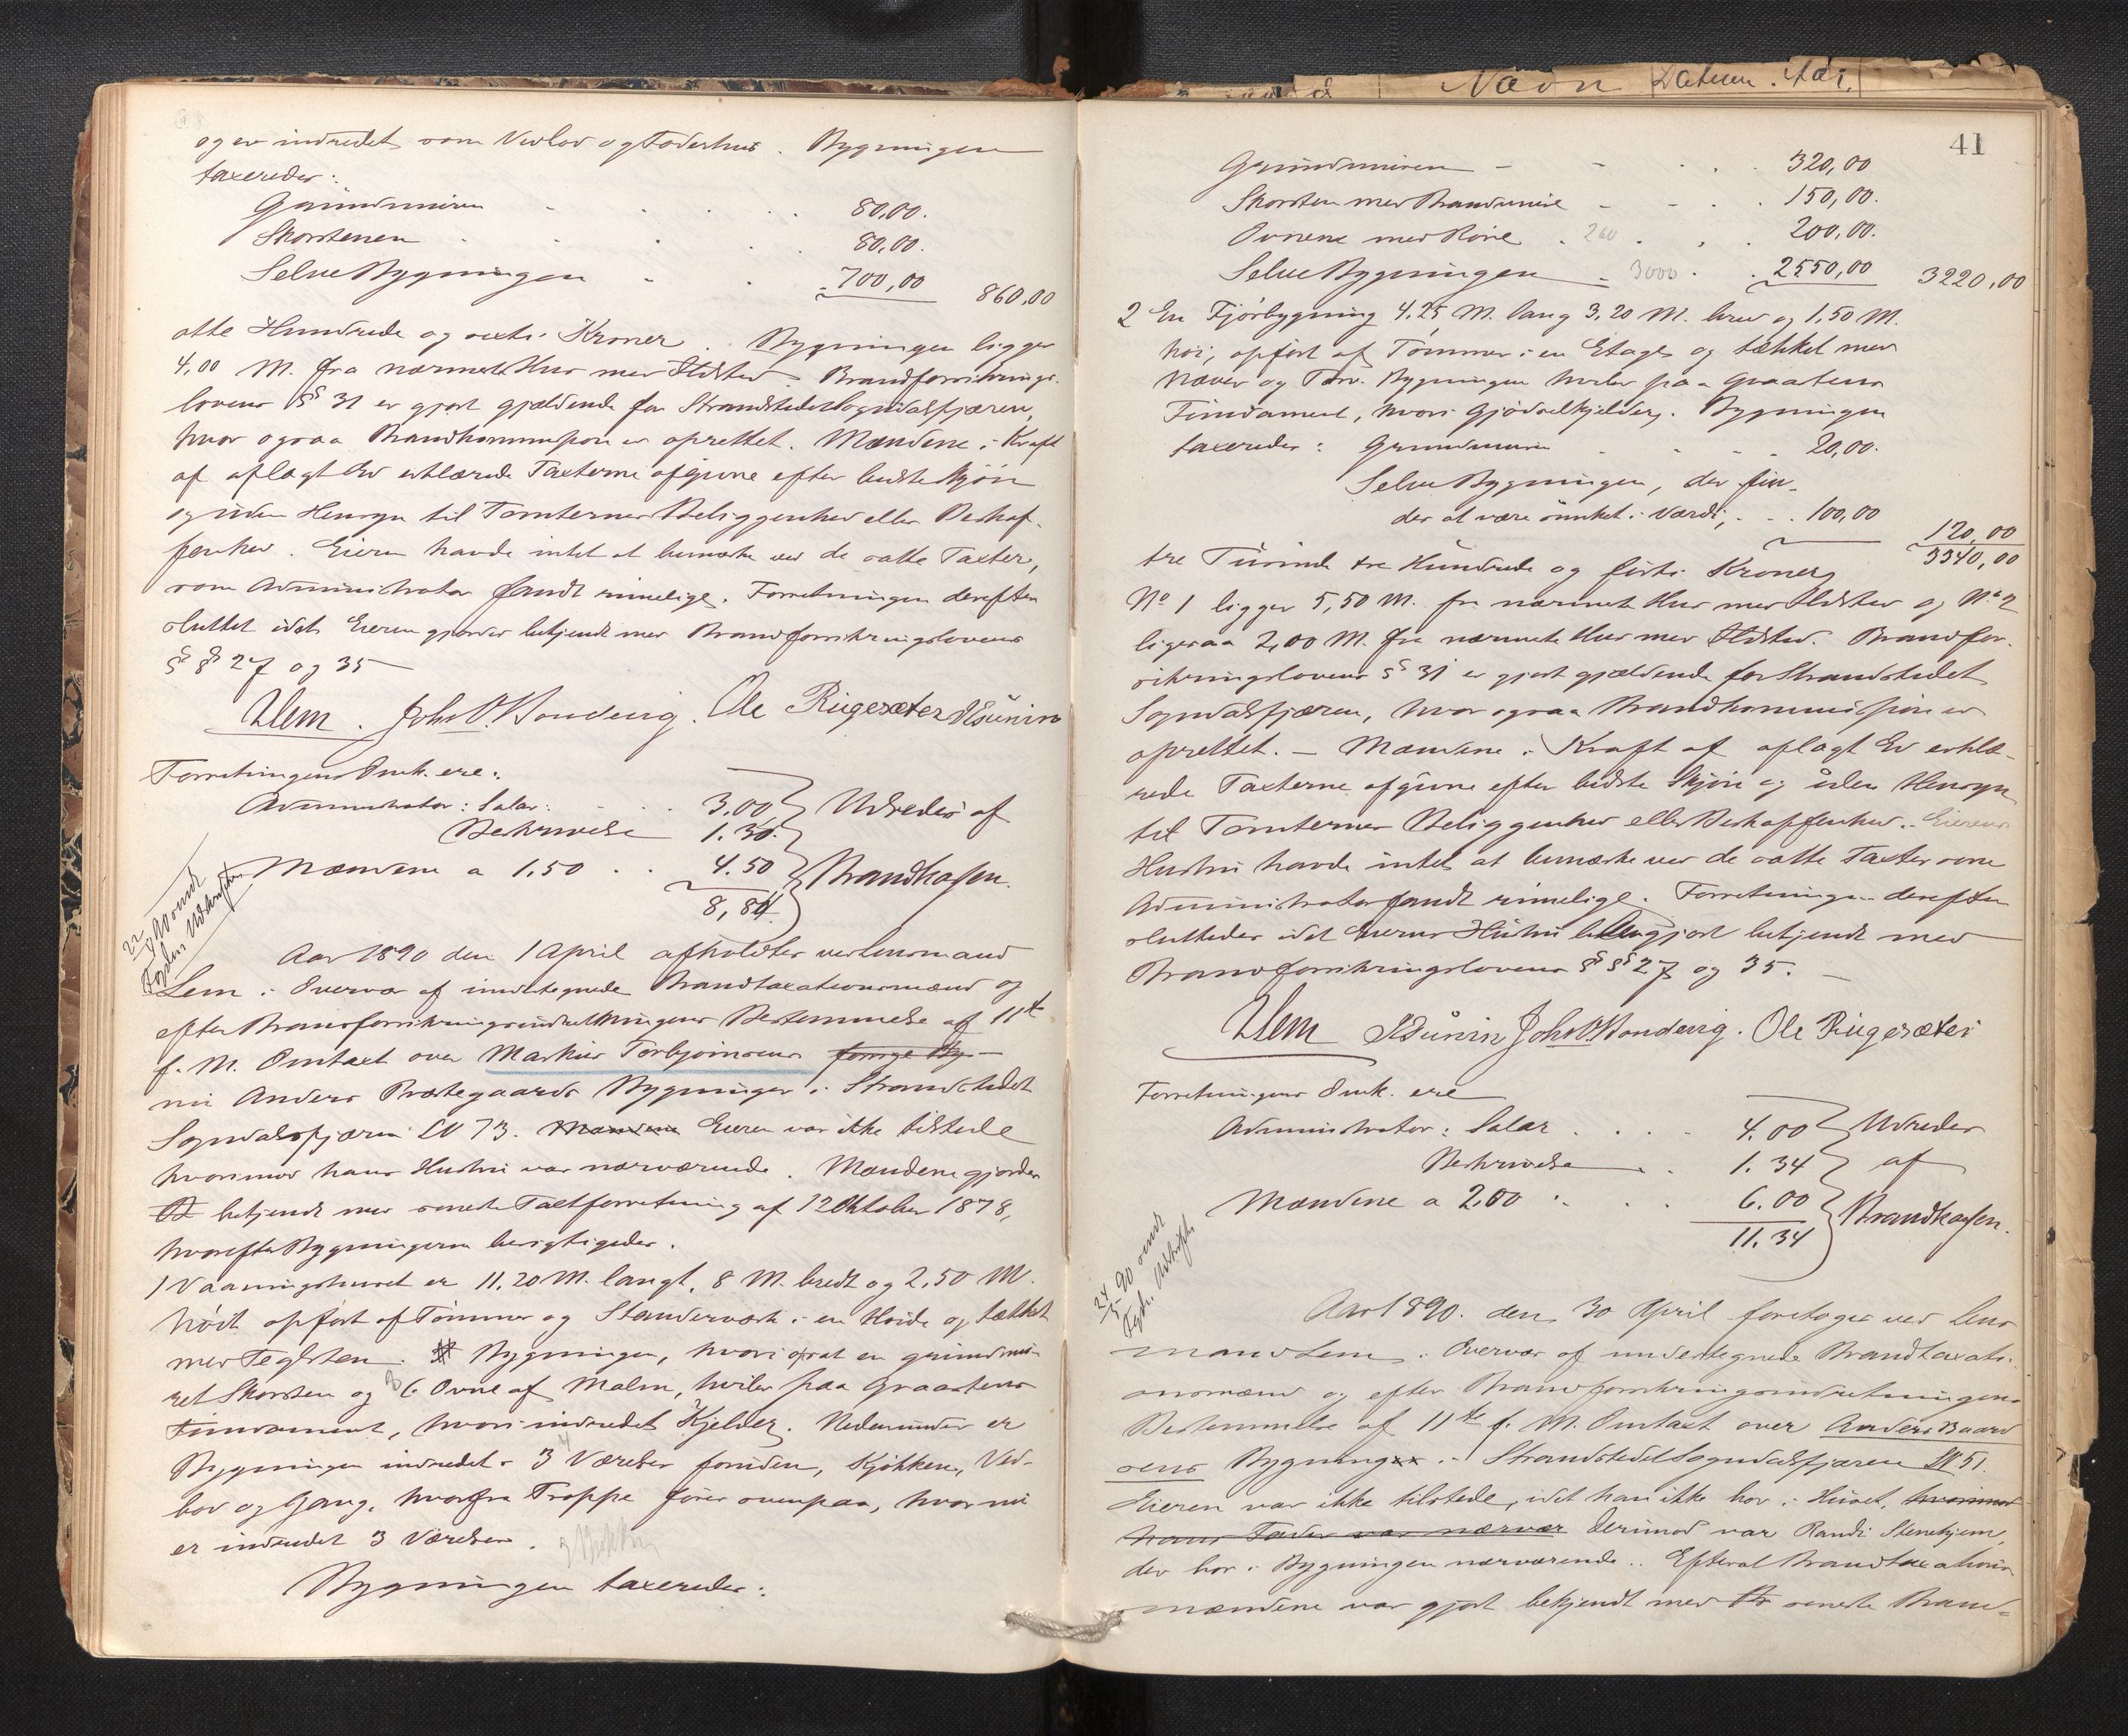 og er indredet som Vedlad og Foderhus. Bygningen
taxeredes:
Grundmuren - - - - 80,00.
Skorstenen - - - 80,00.
Selve Bygningen - - 700,00 860,00
otte Hundrede og sexti Kroner. Bygningen ligger
4,00 M. fra nærmeste Hus med Ildsted. Brandforsikrings-
lovens § 31 er gjort gjældende for Strandstedet Sogndalsfjæren,
hvor ogsaa Brandkommission er oprettet. Mændene i Kraft
af aflagt Ed erklærede Taxterne afgivne efter bedste Skjön
og uden Hensyn til Tomternes Beliggenhed eller Beskaf-
fenhed. Eieren havde intet at bemærke ved de satte Taxter,
som Administrator fandt rimelige. Forretningen derefter
sluttet idet Eieren gjordes bekjendt med Brandforsikringslovens
§ § 27 og 35
Lem. Joh. O. Bondevig. Ole Rugesæter
Forretningens Omk. ere:
Administrator: Salær: - - - 3.00 Udredes af
Beskrivelse 1.30.
Mændene a 1,50 . . 4.50 Brandkassen.
8,80
22/4 90 sendt
Fogden Udskriften
Aar 1890 den 1 April afholdtes ved Lensmand
Lem i Overvær af undertegnede Brandtaxationsmænd og
efter Brandforsikringsindretningens Bestemmelse af 11te
f. M. Omtaxt over Markus Torbjörnsens forrige By-
nu Anders Præstegaards Bygninger i Strandstedet
Sogndalsfjæren LN 73. Mændene Eieren var ikke tilstede
hvorimod hans Hustru var nærværende. Mændene gjordes
bekjendt med seneste Taxtforretning af 12 Oktober 1878,
hvorefter Bygningerne besigtigedes.
1 Vaaningshuset er 11,20 M. langt, 8 M. bredt og 2,50 M.
höit opfört af Tömmer og Standerværk i en Höide og tækket
med Teglsten. Bygningen, hvori opsat en grundmu-
ret Skorsten og 6 Ovne af Malm, hviler paa Graastens
Fundament, hvori indredet Kjelder. Nedenunder er
Bygningen indredet 3 Værelser foruden, Kjökken, Ved-
bod og Gang, hvorfra Trappe förer ovenpaa, hvor nu
er indredet 3 Værelser.
Bygningen taxeredes:
41
Nævn Datum. Aar.
Grundmuren - - . . 320,00
Skorsten med Brandmure - - . . 150,00.
Ovnene med Röre . 260 . . . 200,00.
Selve Bygningen - 3000 . . 2550,00 3220,00
2 En Fjösbygning 4.25 M. lang 3,20 M. bred og 1,50 M.
höi, opfört af Tömmer i en Etage og tækket med
Næver og Törv. Bygningen hviler paa Graastens
Fundament, hvori Gjödselkjelder. Bygningen
taxeredes: Grundmuren - - - - 20,00.
Selve Bygningen, der fin-
des at være sunket i Værdi, - . . 100,00 120,00
3340,00
tre Tusinde tre Hundrede og förti Kroner
No 1 ligger 5,50 M. fra nærmeste Hus med Ildsted og No 2
ligesaa 2,00 M. fra nærmeste Hus med Ildsted. Brandfor-
sikringslovens § 31 er gjort gjældende for Strandstedet
Sogndalsfjæren, hvor ogsaa Brandkommission er
oprettet. - Mændene i Kraft af aflagt Ed erklæ-
rede Taxterne afgivne efter bedste Skjön og uden Hensyn
til Tomternes Beliggenhed eller Beskaffenhed. Eierens
Hustru havde intet at bemærke ved de satte Taxter som
Administrator fandt rimelige. Forretningen derefter
sluttedes idet Eierens Hustru blev gjort bekjendt med
Brandforsikringslovens § § 27 og 35. -
Lem Joh. O. Bondevig. Ole Rugesæter
Forretningens Omk. ere
Administrator: Salær . . . . 4.00 Udredes
Beskrivelse . . 1.34 af
Mændene a 2,00 . . . 6.00 Brandkassen.
11.34
24/5 90 sendt
Fgd. Udskrift
Aar 1890. den 30 April foretoges ved Lens
mand Lem i Overvær af undertegnede Brandtaxati-
onsmænd og efter Brandforsikringsindretningens
Bestemmelse af 11te f. M. Omtaxt over Anders Baard
sens Bygning i Strandstedet Sogndalsfjæren LN 51.
Eieren var ikke tilstede, idet han ikke bor i Huset, hvorimod
hans Fader var nærvær derimod var Randi Stenehjem,
der bor i Bygningen nærværende. Efterat Brandtaxations
mændene var gjort bekjendt med seneste Brand-